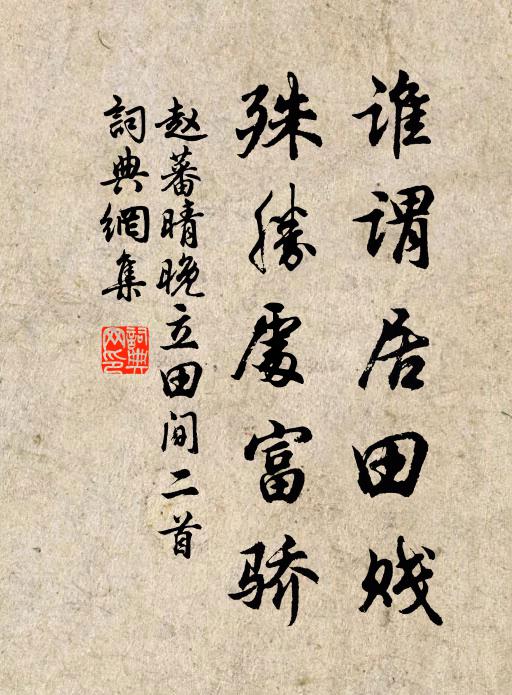 谁谓居田贱
殊勝處富骄
赵蕃晴晚立田间二首
詞典網集
詞典网印